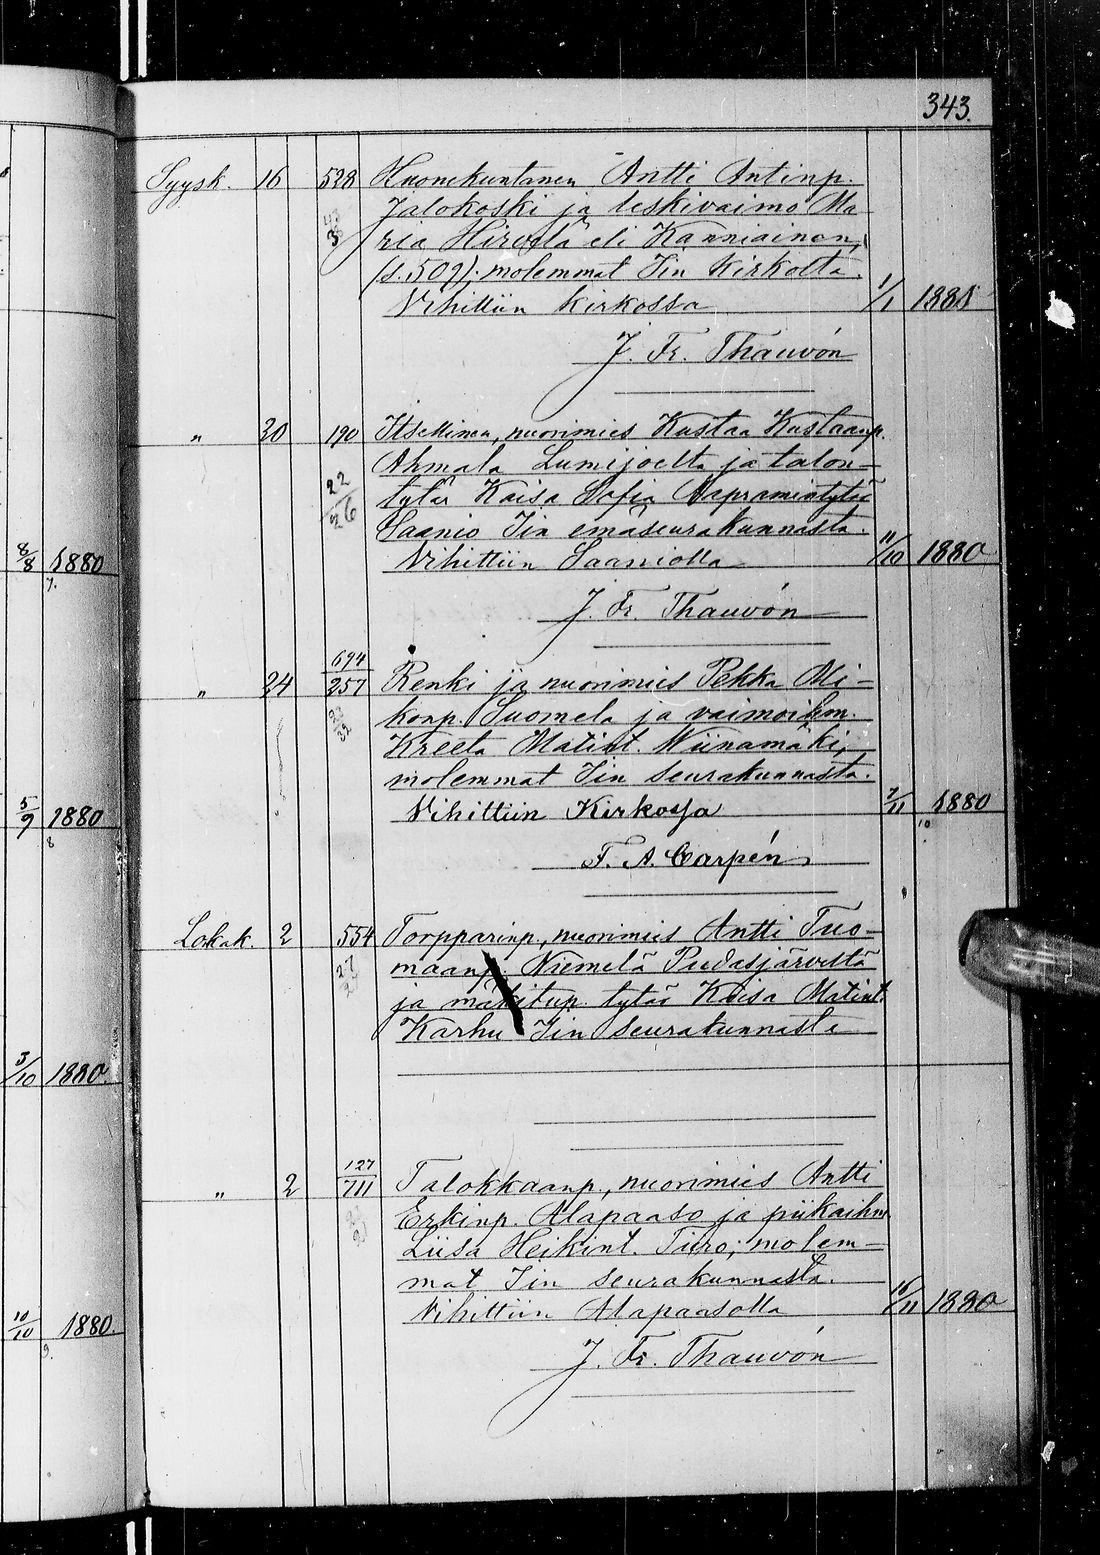 343.
Syysk. 16 528 Huonekuntanen Antti Antinp.
Jalokoski ja leskivaimo Ma
3 ria Hirvelä eli Kanniainen,
(s. 509); molemmat Iin Kirkolta.
Vihittiin kirkossa 1/1 1881
J. Fr. Thauvón
" 20 190 Itsellinen, nuorimies Kustaa Kustaanp.
Ahmala Lumijoelta ja talon-
22/26 tytär Kaisa Sofia Aapramintytär
Saanio Iin emäseurakunnasta.
8/8 1880 Vihittiin Saaniolla 11/10 1880
7.
J. Fr. Thauvón
694
" 24 257 Renki ja nuorimies Pekka Mi-
23/32 konp. Suomela ja vaimoihm.
Kreeta Matint. Wiinamäki,
molemmat Iin seurakunnasta.
5/9 1880 Vihittiin Kirkossa 7/11 1880
8 10
F. A. Carpén
Lokak. 2 554 Torpparinp., nuorimies Antti Tuo-
27 maanp. Niemelä Pudasjärveltä
ja mäkitup. tytär Kaisa Matint.
Karhu Iin seurakunnasta
3/10 1880.
127
" 2 711 Talokkaanp., nuorimies Antti
Erkinp. Alapaaso ja piikaihm.
21 Liisa Heikint. Tiiro; molem-
mat Iin seurakunnasta.
10/10 1880. Vihittiin Alapaasolla 16/11 1880
9.
J. Fr. Thauvón